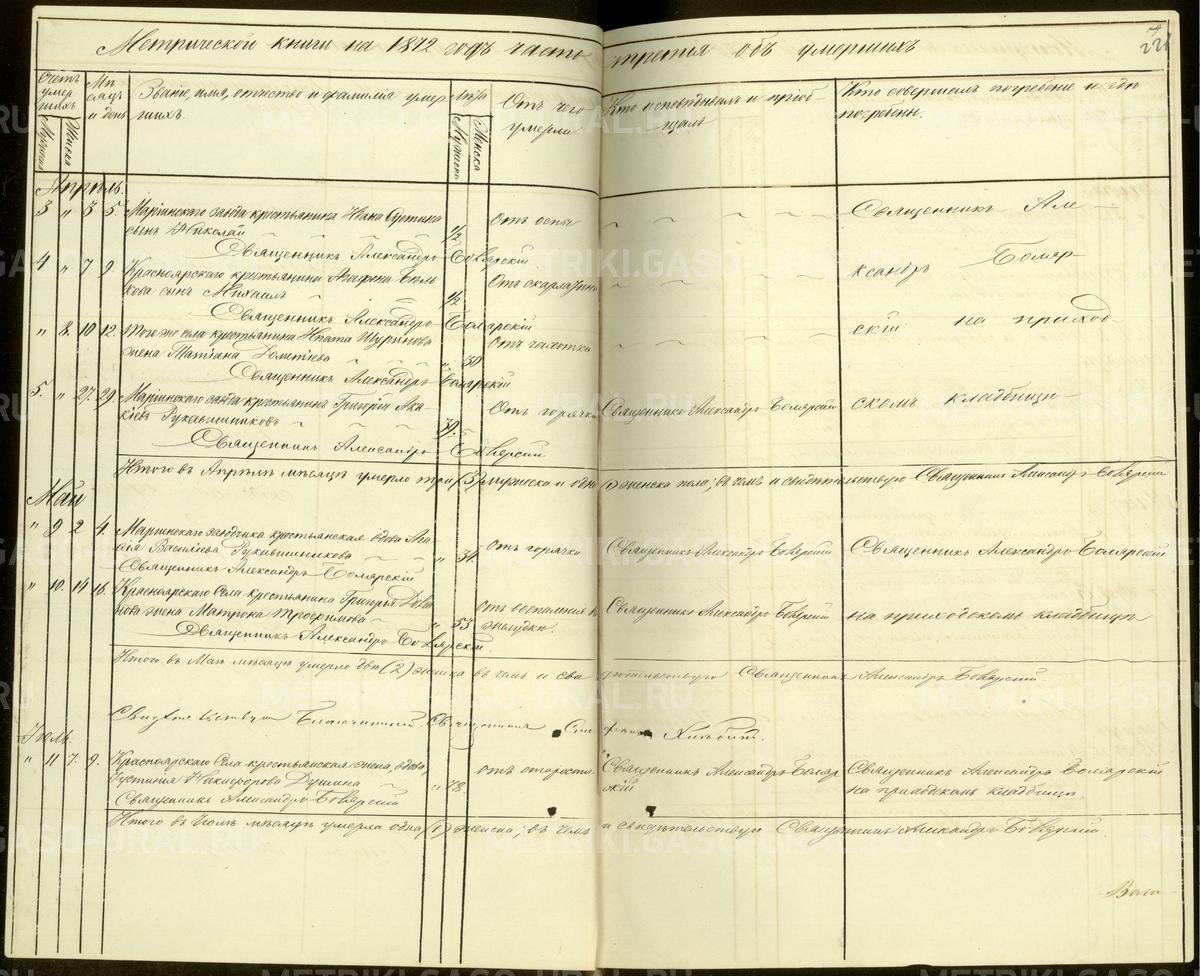 Метрической книги на 1872 годъ часть третья объ умершихъ
221
Счетъ умершихъ
Мужска
Женска
Мѣсяцъ и день
Званіе, имя, отчество и фамилія умершихъ.
Лѣта
Мужска
Женска
Отъ чего умерли
Кто исповѣдывалъ и пріобщалъ
Кто совершалъ погребеніе и гдѣ погребены.
Апрѣль.
3 " 3 5. Маріинскаго завода крестьянина Ивана
сынъ Николай 1/2 Отъ оспы
Священникъ Александръ Боярскій
4 " 7 9. Красноярскаго крестьянина Агафона
кова сынъ Михаилъ 1/2 Отъ скарлатины
Священникъ Александръ Боярскій
" 8. 10 12. Того же села крестьянина Ипата
жена Татіана " 30 Отъ чахотки
Священникъ Александръ Боярскій
5. " 27. 29. Маріинскаго завода крестьянинъ Григорій Ака-
кіевъ Рукавишниковъ 39. Отъ горячки Священникъ Александръ Боярскій
Священникъ Александръ Боярскій
Священникъ Але-
ксандръ Бояр-
скій на приход-
скомъ кладбищѣ
Итого въ Апрѣлѣ мѣсяцѣ умерло три (3) мужеска и одна (1) женска пола; въ чемъ и свидѣтельствую Священникъ Александръ Боярскій
Май
" 9 2 4. Маріинскаго крестьянская вдова
Васильева Рукавишникова " 34. отъ горячки Священникъ Александръ Боярскій Священникъ Александръ Боярскій
Священникъ Александръ Боярскій
" 10. 14 16. Красноярскаго Села крестьянина Григорья
нова жена Матрона Трофимова " 53 отъ воспаленія въ желудкѣ. Священникъ Александръ Боярскій на приходскомъ кладбищѣ
Священникъ Александръ Боярскій.
Итого въ Маѣ мѣсяцѣ умерло двѣ (2) женска въ чемъ и свидѣтельствую Священникъ Александръ Боярскій
Благочинный Священникъ
Іюль.
" 11 7. 9. Красноярскаго Села крестьянская жена, вдова,
Іустинія Никифорова " 78. отъ старости. Священникъ Александръ Боярскій Священникъ Александръ Боярскій
Священникъ Александръ Боярскій на приходскомъ кладбищѣ.
Итого въ Іюлѣ мѣсяцѣ умерла одна (1) женска; въ чемъ и свидѣтельствую Священникъ Александръ Боярскій.
METRIKI.GASO-URAL.RU